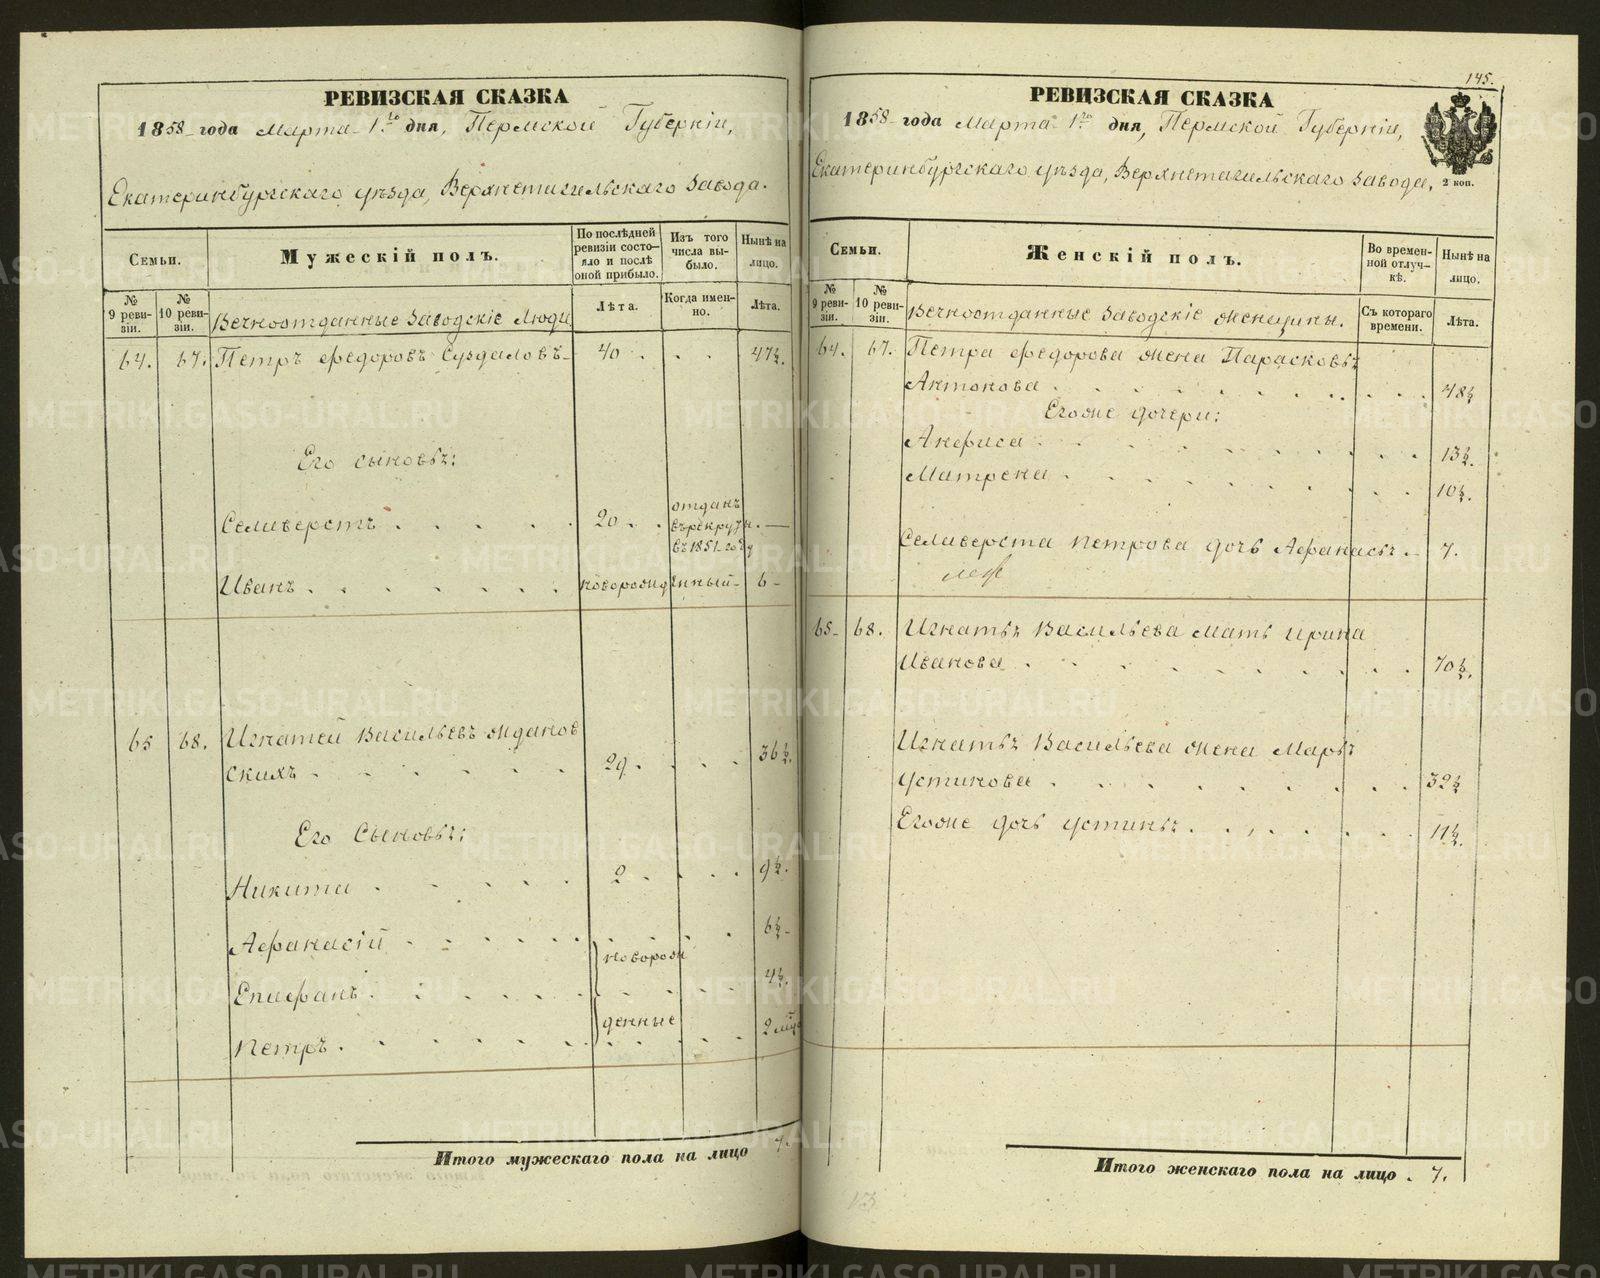 РЕВИЗСКАЯ СКАЗКА
1858 года Марта 1го дня, Пермской Губерніи,
Екатеринбургскаго уѣзда, Верхнетагильскаго Завода.
Семьи.
Мужескій полъ.
По послѣдней ревизіи состояло и послѣ оной прибыло.
Изъ того числа выбыло.
Нынѣ на лицо.
№ 9 ревизіи.
№ 10 ревизіи.
Вечноотданные Заводскіе Люди
Лѣта.
Когда именно.
Лѣта.
64. 67. Петръ Федоровъ Суздаловъ 40 . . . 47½.
Его сыновья:
Селиверстъ . . . . . 20 . . отданъ въ рекруты въ 1851 году. —
Иванъ . . . . . . новорожденный 6 -
65 68. Игнатей Васильевъ Жданов
скихъ . . . . . 29 . . . . 36½.
Его Сыновья:
Никита . . . . 2 . . . . 9½.
Афанасій . . . . . . . . . 6½
новорож
Епифанъ . . . . . . . . 4½.
денные
Петръ . . . . . . . . . . 2 мѣс
Итого мужескаго пола на лицо 7.
145.
РЕВИЗСКАЯ СКАЗКА
1858 года Марта 1го дня, Пермской Губерніи,
Екатеринбургскаго уѣзда, Верхнетагильскаго Завода,
2 коп.
Семьи.
Женскій полъ.
Во временной отлучкѣ.
Нынѣ на лицо.
№ 9 ревизіи.
№ 10 ревизіи.
Вечноотданные Заводскіе женщины.
Съ котораго времени.
Лѣта.
64. 67. Петра Федорова жена Парасковья
Антонова . . . . . . . . . . 48½
Его же дочери:
Анфиса . . . . . . . . . 13½.
Матрена . . . . . . . . . 10½.
Селиверста Петрова дочь Афанасья 7.
65 68. Игнатья Васильева мать Ирина
Иванова . . . . . . . . . 70½.
Игнатья Васильева жена Марья
Устинова . . . . . . . . . 32½
Его же дочь Устинья . . . . . . . 11½.
Итого женскаго пола на лицо . 7.
METRIKI.GASO-URAL.RU